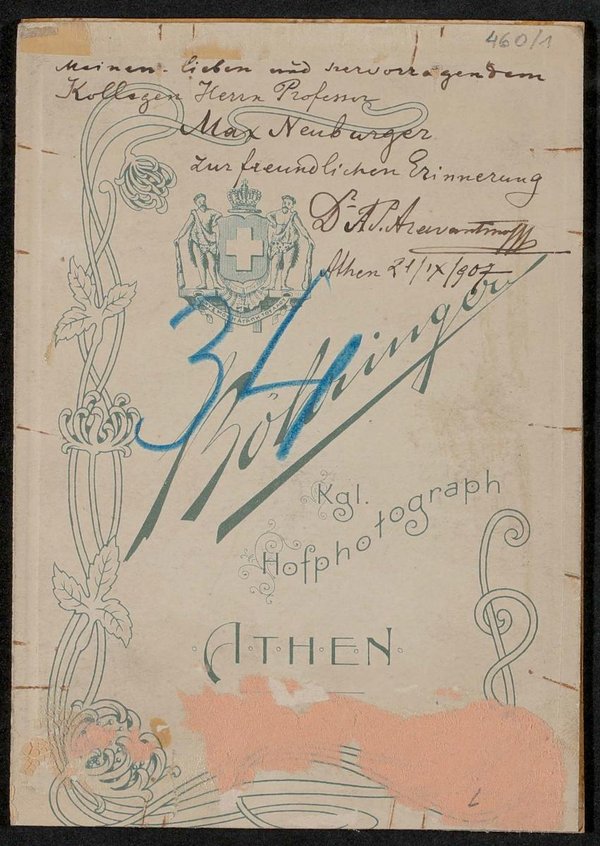 460/1
Meinen lieben und hervorragendem
Kollegen Herrn Professor
Max Neuburger
zur freundlichen Erinnerung
Dr A.P. Aravantinos
Athen 21/IX/907
34
Böhringer
Kgl.
Hofphotograph
ATHEN